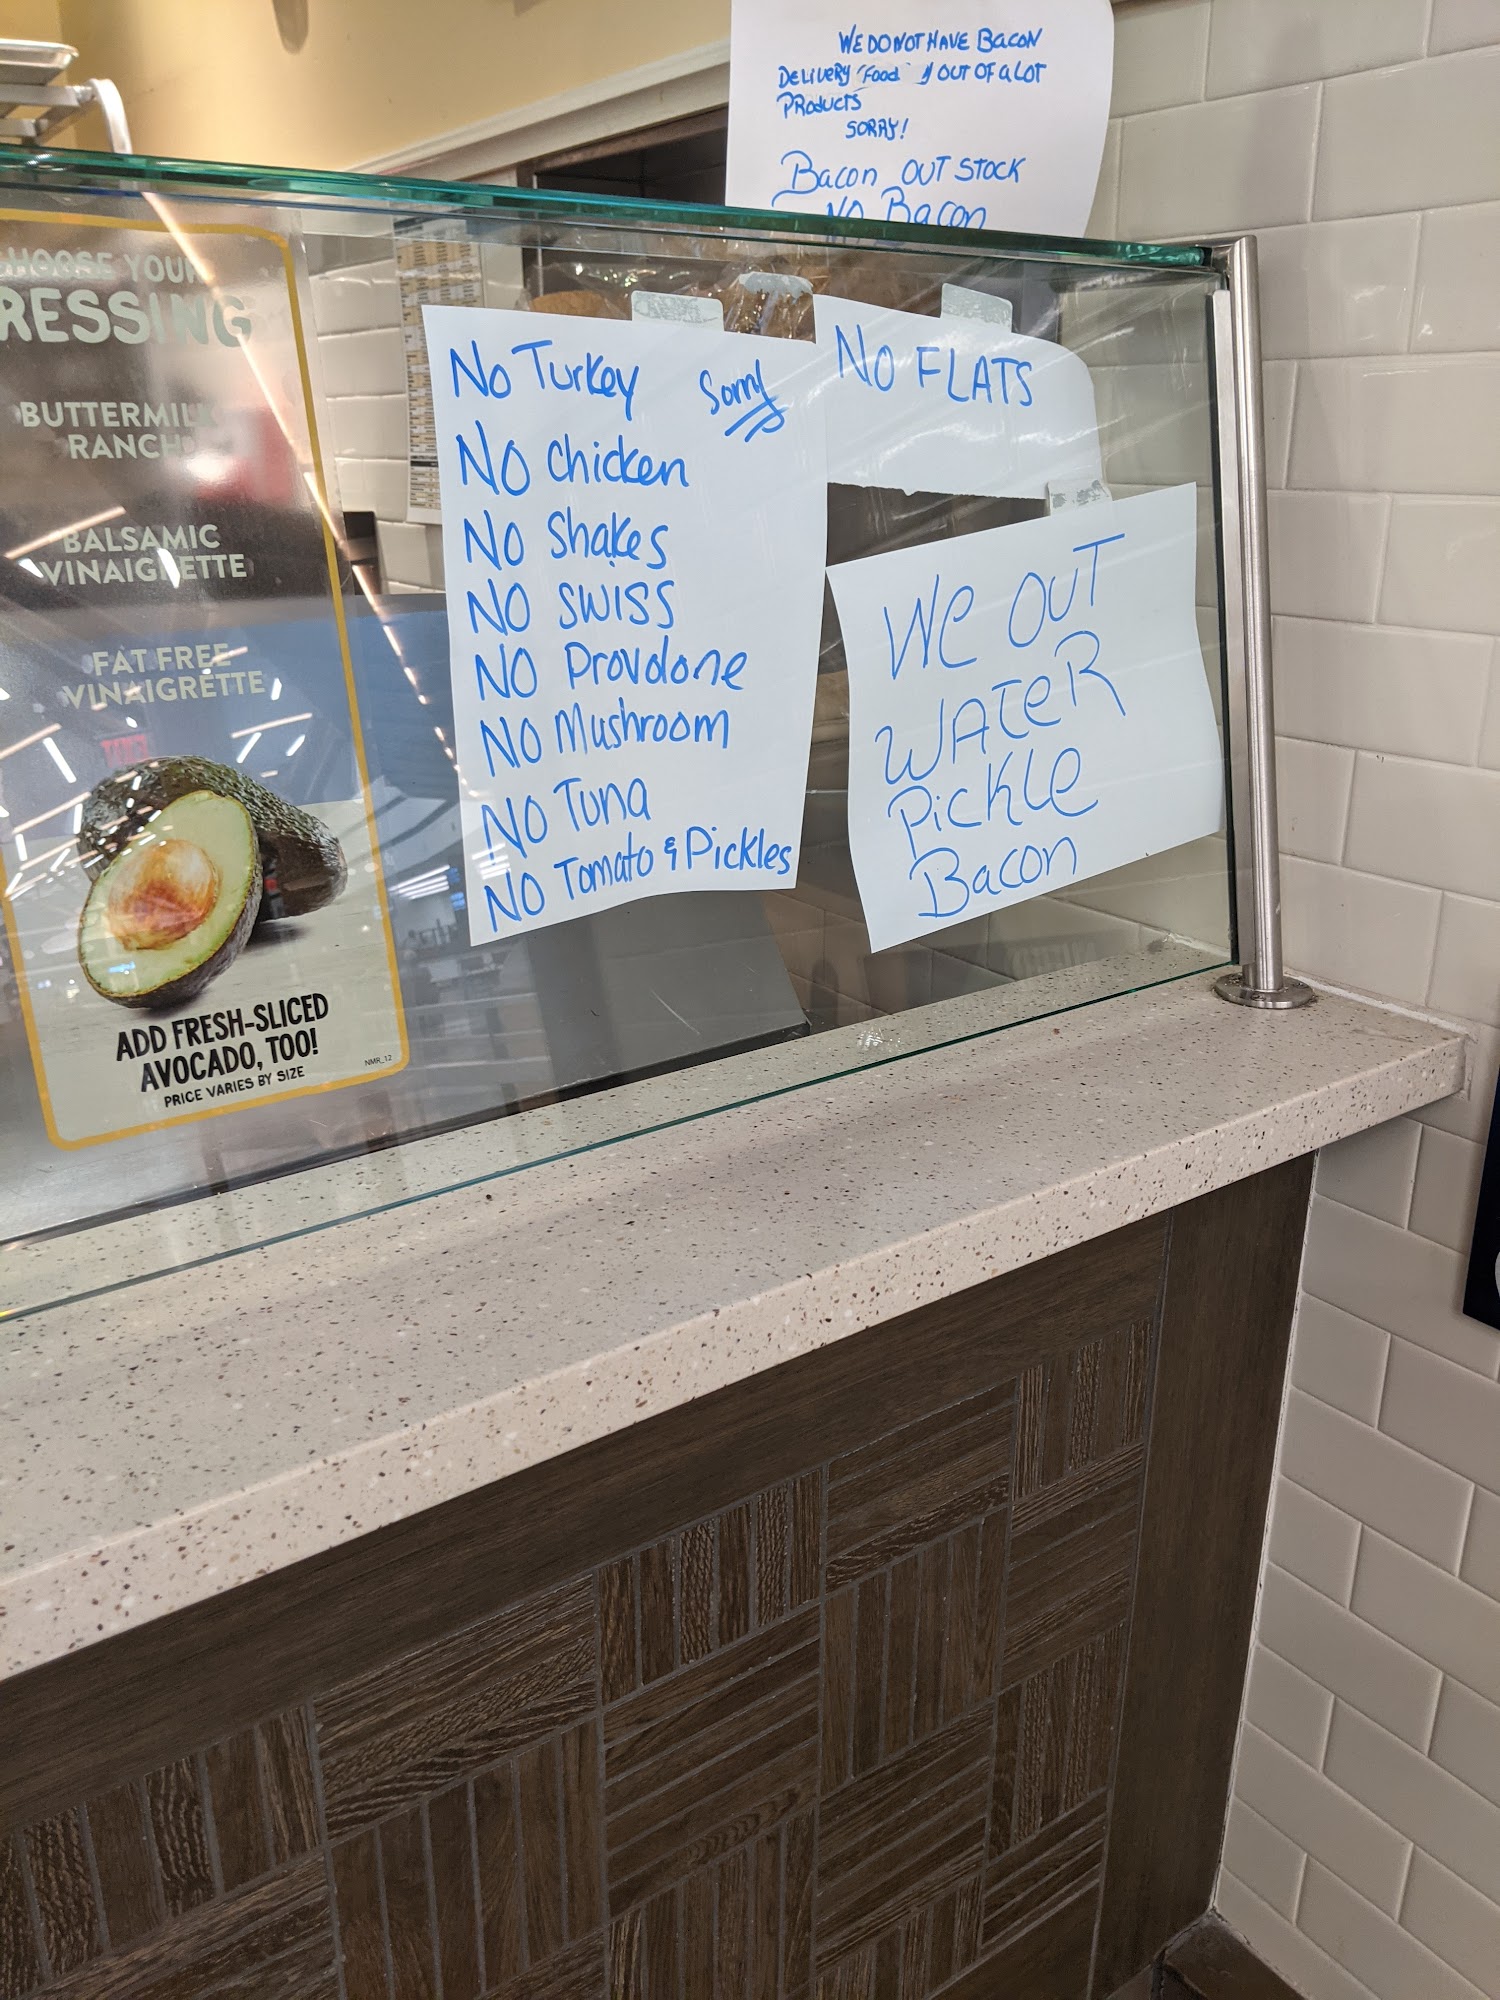 WE DO NOT HAVE BACON
DELIVERY "Food" OUT OF a LOT
PRODUCTS
SORRY!
Bacon OUT STOCK
NO Bacon
CHOOSE YOUR
DRESSING
BUTTERMILK
RANCH
BALSAMIC
VINAIGRETTE
FAT FREE
VINAIGRETTE
ADD FRESH-SLICED
AVOCADO, TOO!
PRICE VARIES BY SIZE
NMR_12
No Turkey Sorry
NO chicken
NO Shakes
NO SWISS
NO Provolone
NO Mushroom
NO Tuna
NO Tomato & Pickles
NO FLATS
We OUT
WATeR
Pickle
Bacon